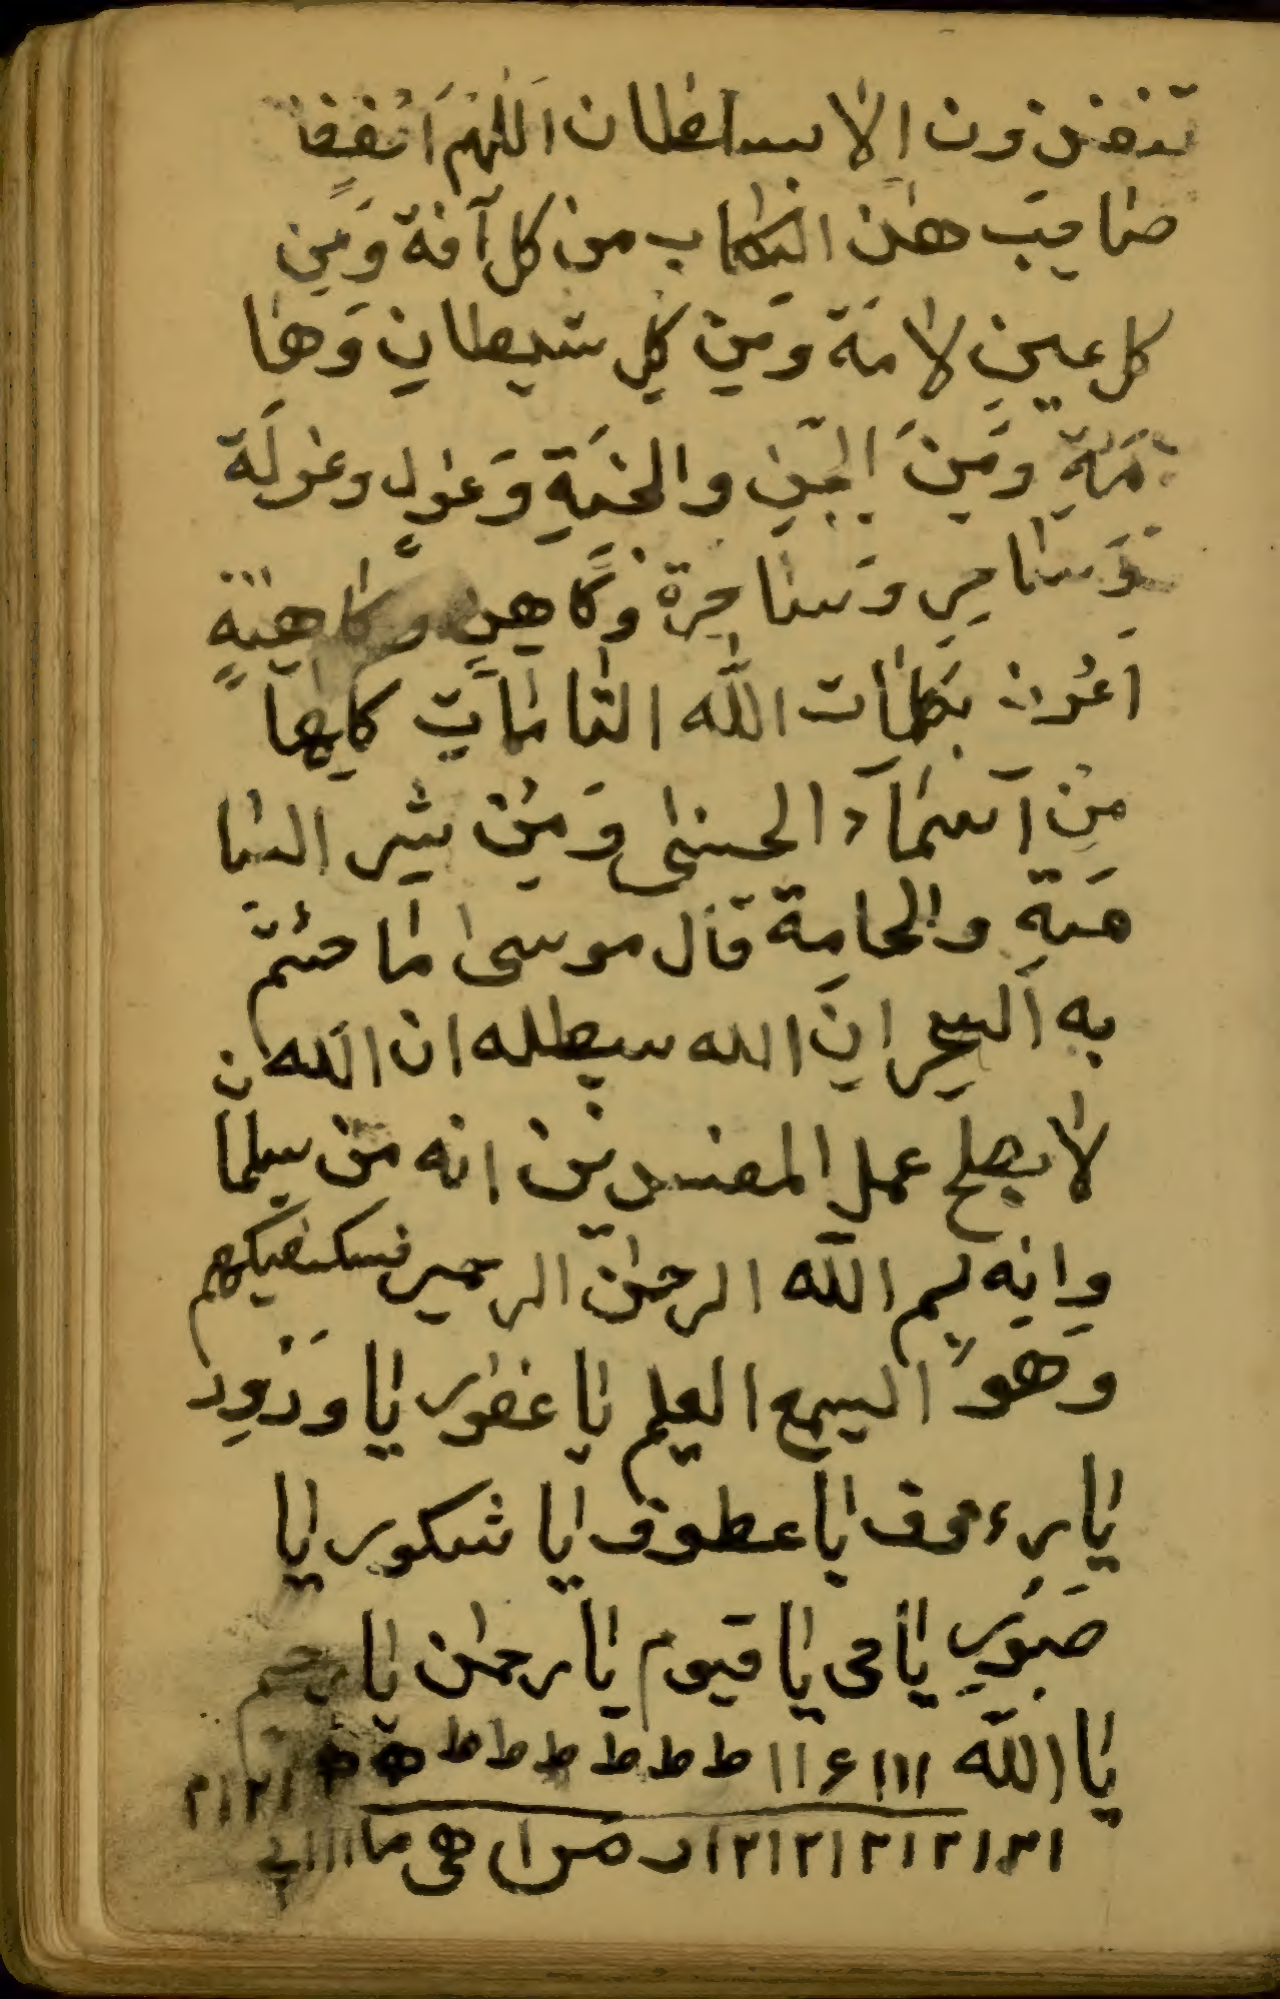 تنفذون الا بسلطان اَللّٰهُمَ اَنْفِقْ
صَاحِبَ هٰذ الكِتٰاب من كل آفة وَمِن
كل عين لٰامَة وَمِن كلِ شيطانٍ وَها
مَةٍ وَمِنَ الجِّنِ والجِنَةِ وَغولٍ وغولَة
وَسٰاحِرٍ وَساحِرة وَكٰاهِنٍ وَكٰاهِنةٍ
اَعُوذ بكلمٰات اللّٰه التٰامٰاتِ كلِهٰا
مِنْ آسمٰآء الحسنىٰ وَمِنْ شرِ السٰا
مَة والحامة قاَل موسىٰ مٰا جئتم
به اَلسِحر انَ الله سيبطله ان الله ن
لٰا يصلح عمل المفسدين انه من سليما
وانه بسم اللّٰه الرحمٰن الرحيم فسيكفيكهم
وَهُوَ السميع العليم يٰا غفور يٰا وَدُود
يٰا رءوف يٰا عطوف يٰا شكور يٰا
صَبُور يٰا حى يٰا قيوم يٰا رحمٰن يٰا رحيم
يٰا اللّٰه ١١١١ ۶ ١١ ط ط ط ط ط ط
١٣١٢١٢١٢١٢١ هى ما ١١١